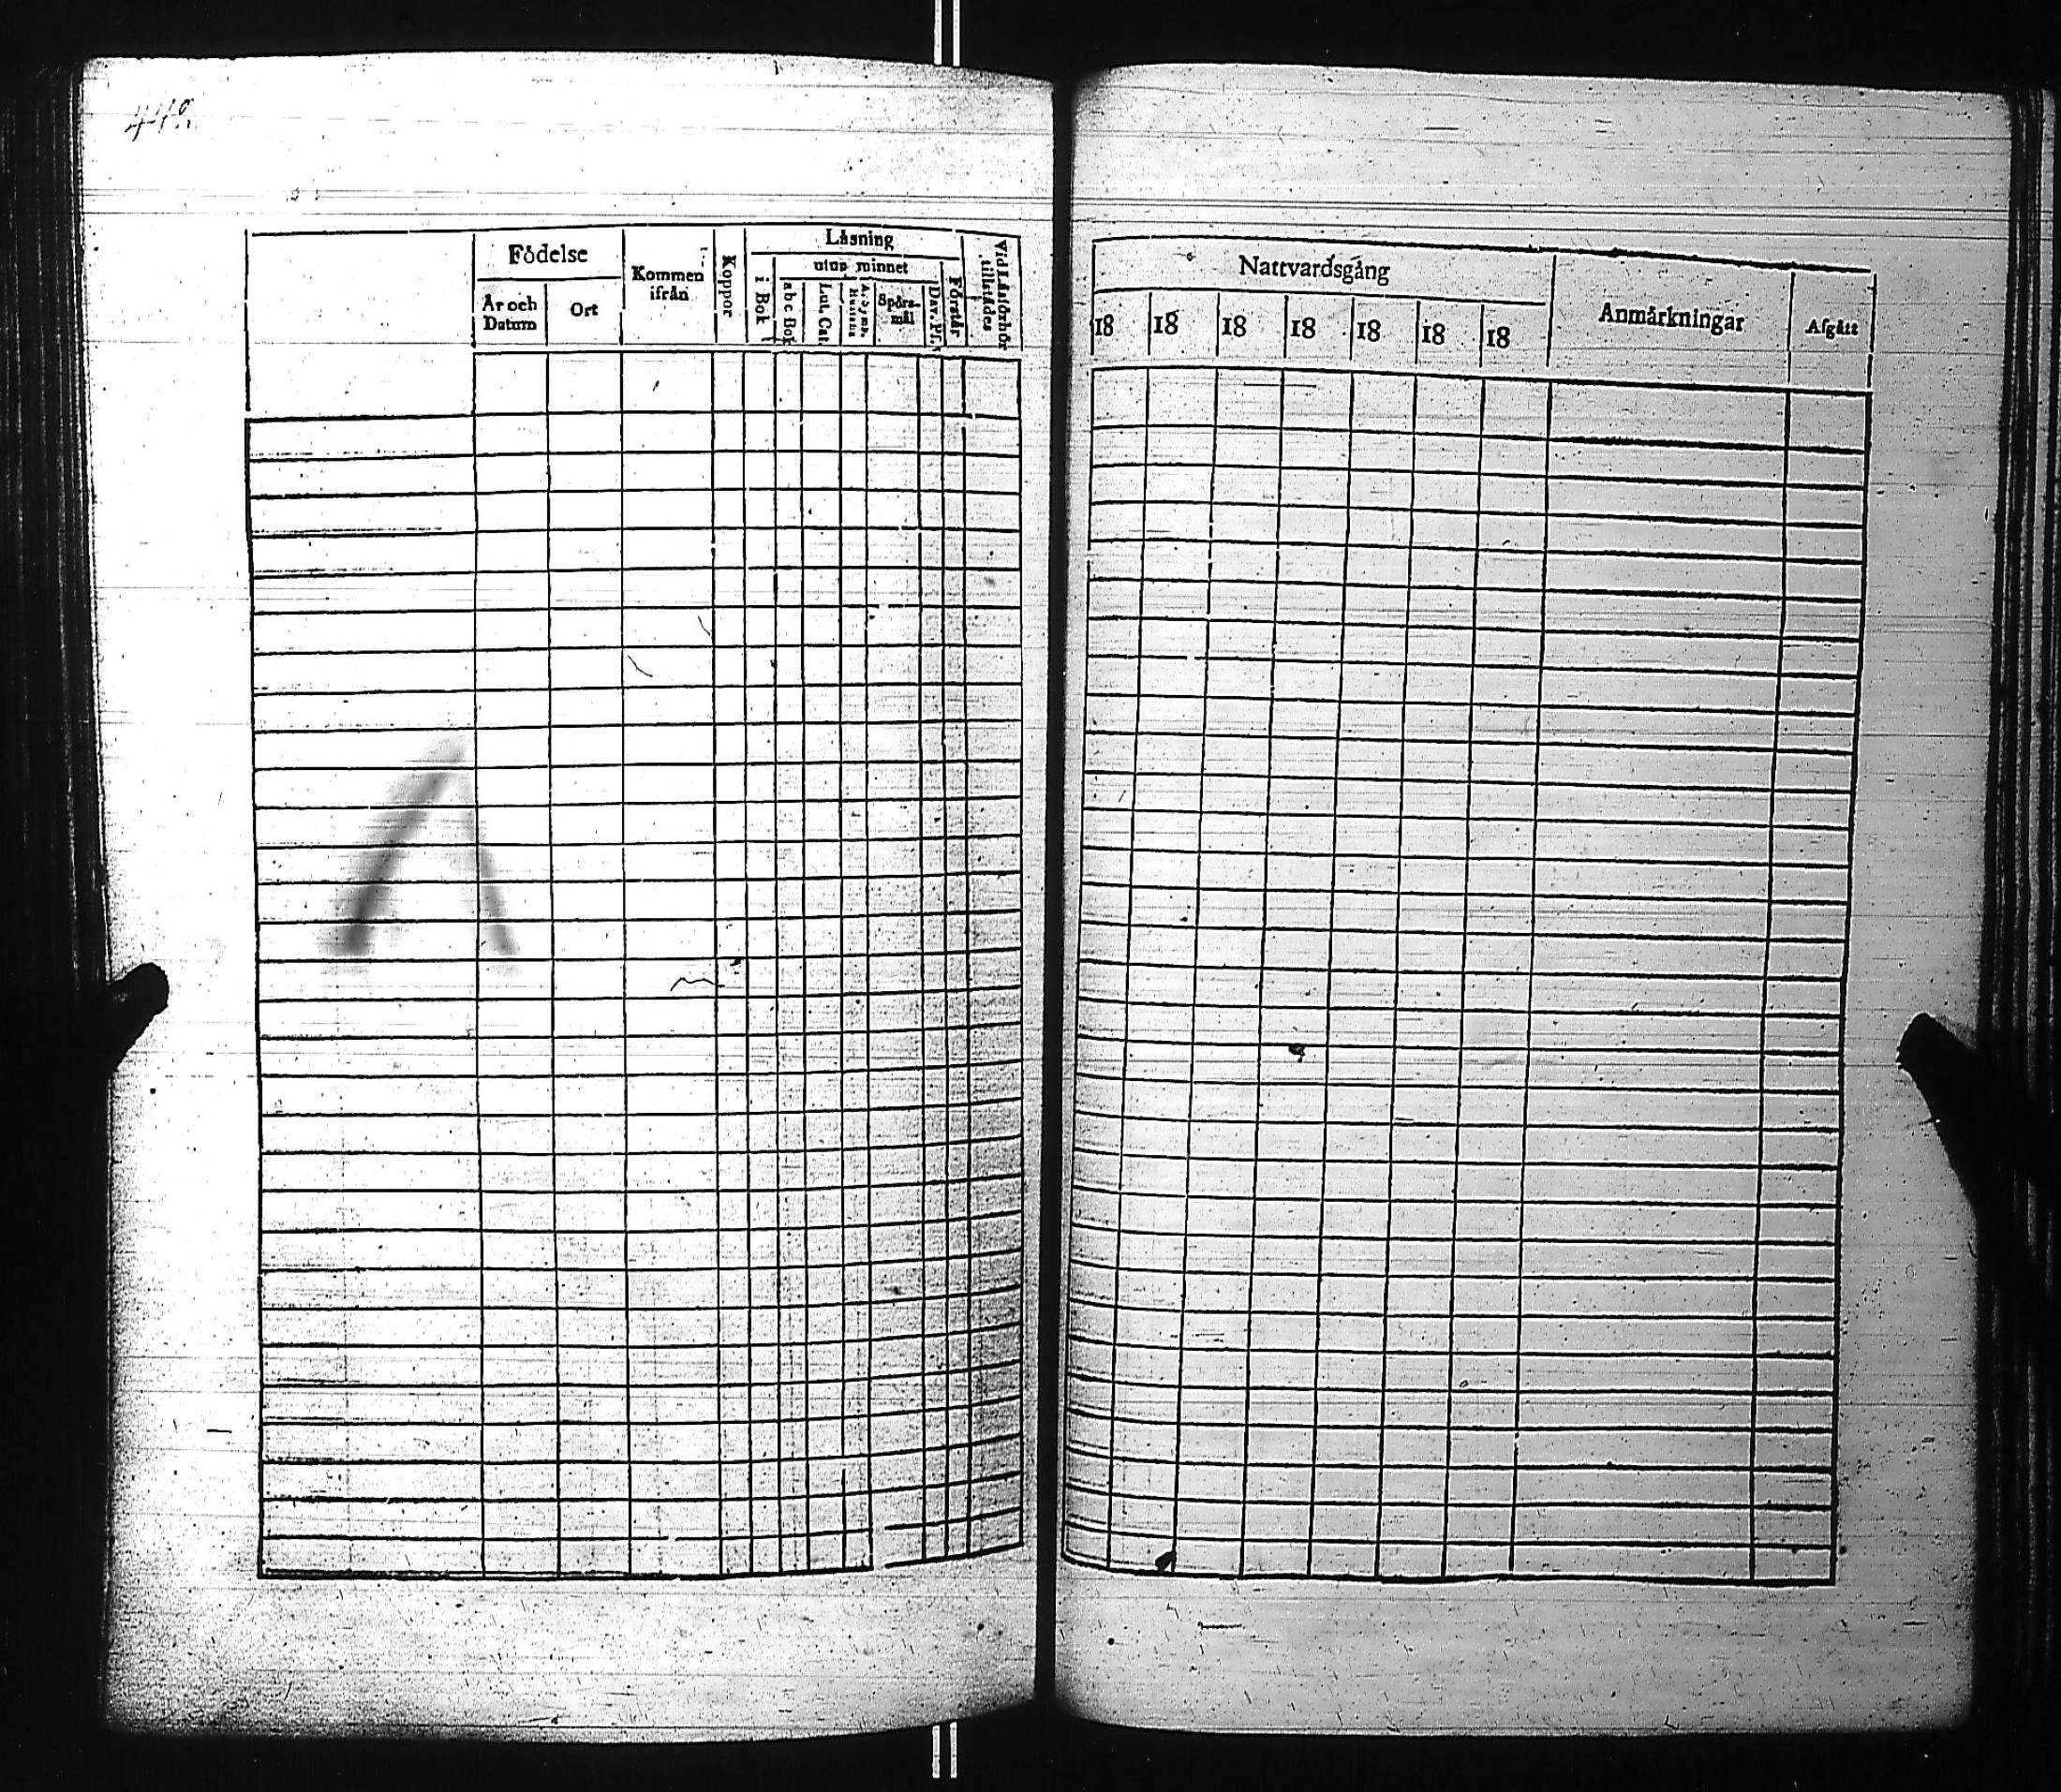 Födelse
År och Datum
Ort
Kommen ifrån
Koppor
Läsning
i Bok
utan minnet
abc Bok
Lut. Cat.
Spörsmål
Dav. Ps.
Förstår
Vid Läsförhör tillstädes
Nattvardsgång
18 18 18 18 18 18 18
Anmärkningar
Afgått